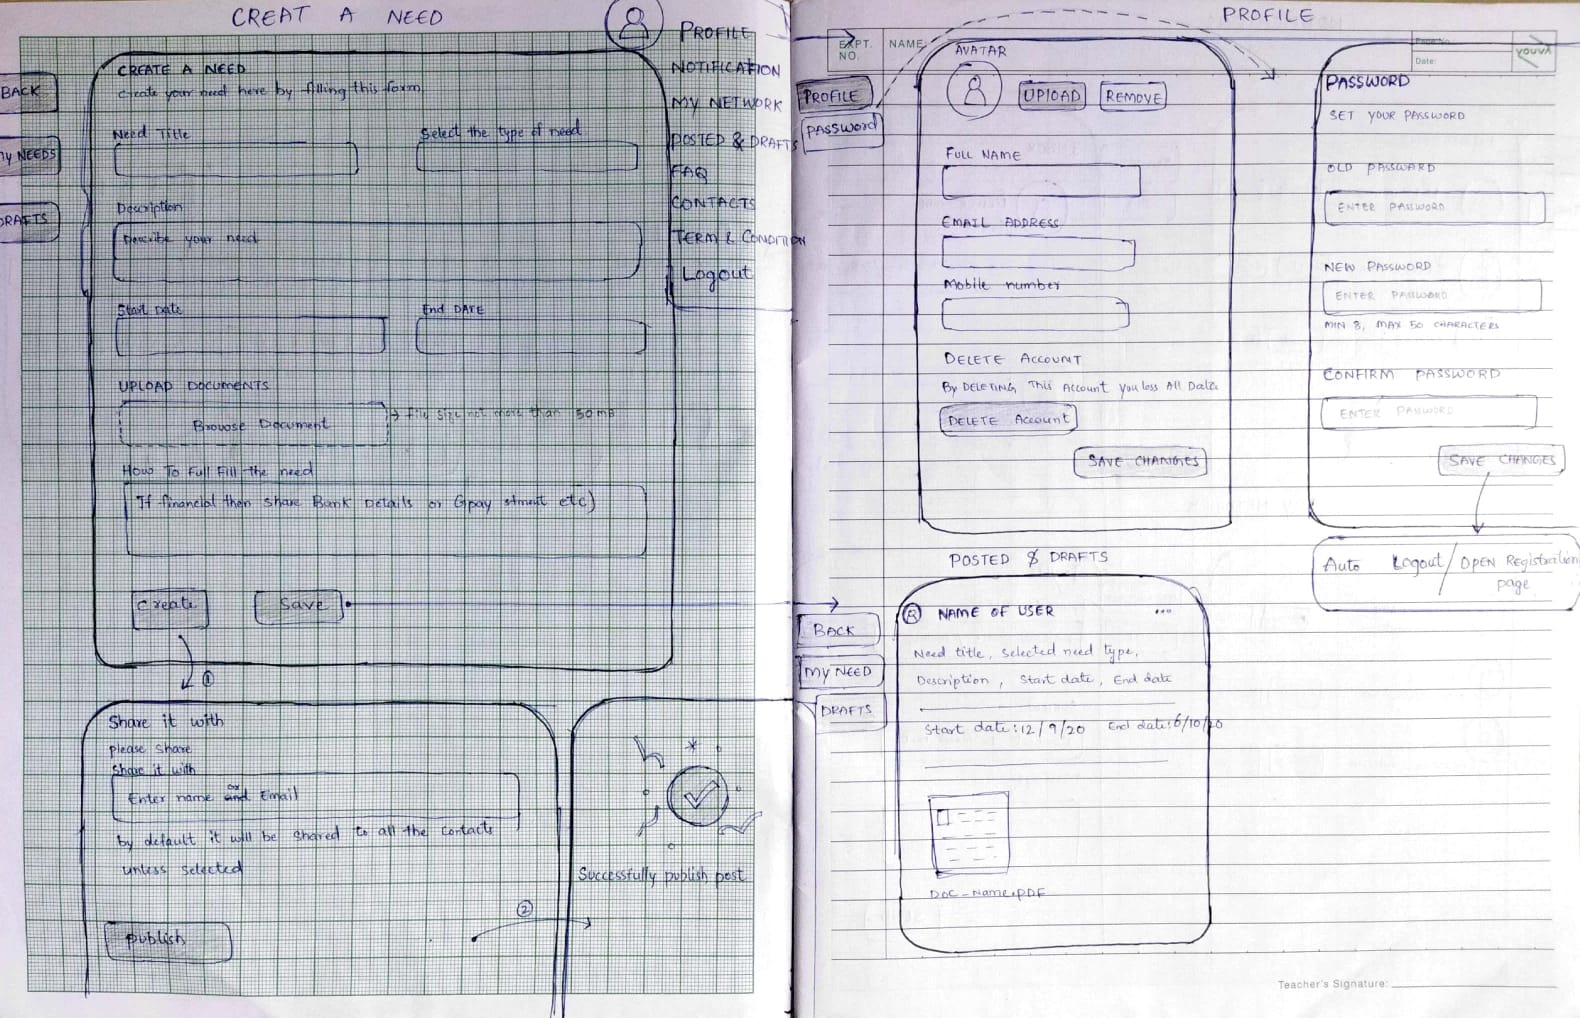 CREAT A NEED
PROFILE
NOTIFICATION
MY NETWORK
POSTED & DRAFTS
FAQ
CONTACTS
TERM & CONDITION
Logout
BACK
MY NEEDS
DRAFTS
CREATE A NEED
Create your need here by filling this form
Need Title
Select the type of need
Description
Describe your need
Start Date
End DATE
UPLOAD DOCUMENTS
Browse Document
→ file size not more than 150 mb
HOW TO Full Fill the need
If financial then share Bank Details or Gpay etc)
Create
Save
1
Share it with
please share
Share it with
Enter name or and Email
by default it will be shared to all the contacts
unless selected
publish
2
Successfully publish post
PROFILE
EXPT. NO.
NAME:
Page No.:
Date:
youva
PROFILE
PASSWORD
AVATAR
UPLOAD
REMOVE
FULL NAME
EMAIL ADDRESS
Mobile number
DELETE ACCOUNT
By DELETING This Account You loss All Data
DELETE Account
SAVE CHANGES
PASSWORD
SET YOUR PASSWORD
OLD PASSWARD
ENTER PASSWORD
NEW PASSWORD
ENTER PASSWORD
MIN 8, MAX 50 CHARACTERS
CONFIRM PASSWORD
ENTER PASSWORD
SAVE CHANGES
Auto Logout / OPEN Registration
page
POSTED & DRAFTS
BACK
MY NEED
DRAFTS
NAME OF USER
...
Need title, Selected need type,
Description, Start date, End date
Start date: 12/9/20 End date: 6/10/20
DOC-Name.PDF
Teacher's Signature: